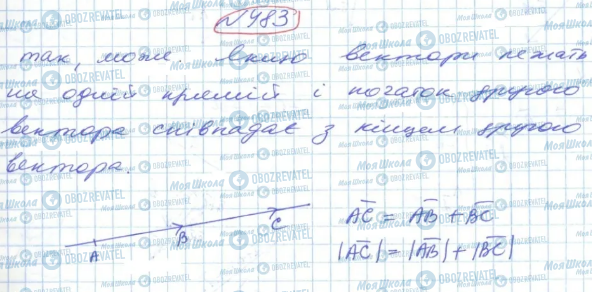 № 483
так, може. Якщо вектори лежать
на одній прямій і початок другого
вектора співпадає з кінцем другого
вектора.
A B C
AC = AB + BC
|AC| = |AB| + |BC|
Моя Школа OBOZREVATEL